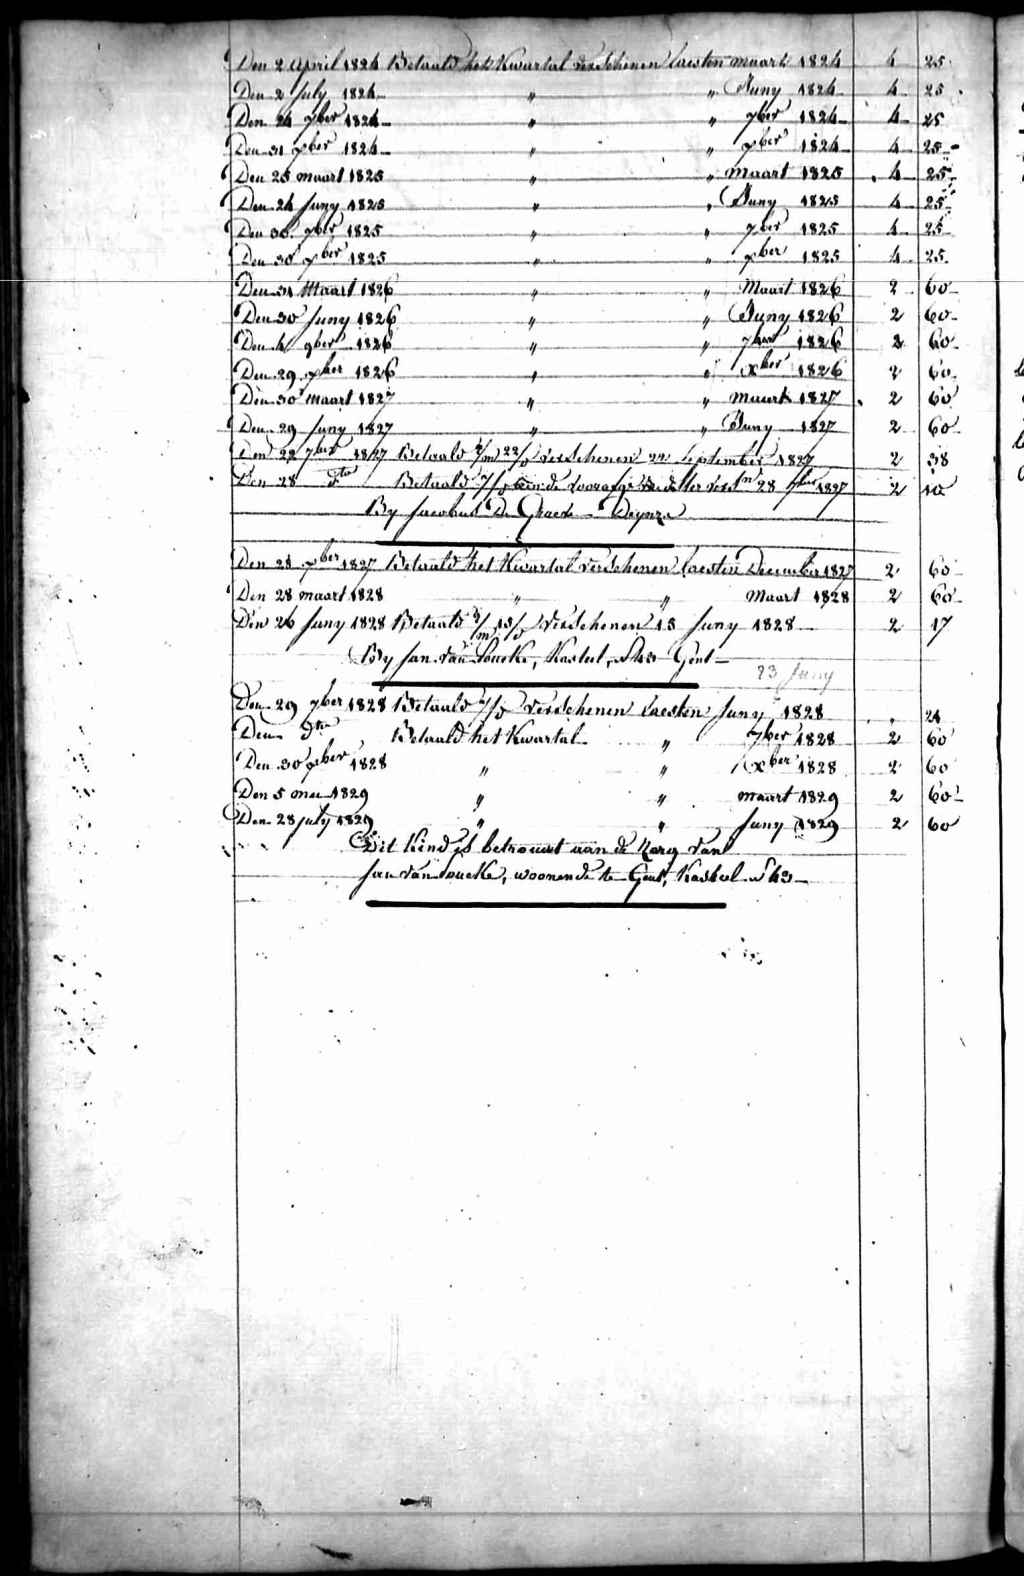 Den 2 April 1824 Betaald het Kwartal verschenen laesten maart 1824 4 25
Den 2 July 1824 " " Juny 1824 4 25
Den 24 7ber 1824 " " 7ber 1824 4 25
Den 31 xber 1824 " " xber 1824 4 25
Den 25 maart 1825 " " maart 1825 4 25
Den 24 Juny 1825 " " Juny 1825 4 25
Den 30 7ber 1825 " " 7ber 1825 4 25
Den 30 xber 1825 " " xber 1825 4 25
Den 31 Maart 1826 " " Maart 1826 2 60
Den 30 Juny 1826 " " Juny 1826 2 60
Den 4 9ber 1826 " " 7ber 1826 2 60
Den 29 xber 1826 " " xber 1826 2 60
Den 30 maart 1827 " " maart 1827 2 60
Den 29 Juny 1827 " " Juny 1827 2 60
Den 22 7ber 1827 Betaald 2/m 22/d verschenen 22 September 1827 2 38
Den 28 dto Betaald aan de 28 7ber 1827 2 10
By Jacobus De Graeve Deynze
Den 28 xber 1827 Betaald het Kwartal verschenen laesten December 1827 2 60
Den 28 maart 1828 " " Maart 1828 2 60
Den 26 Juny 1828 Betaald 2/m 13/d verschenen 13 Juny 1828 2 17
By Jan van Loucke, Kasteel, N 43 Gent
23 Juny
Den 29 7ber 1828 Betaald verschenen laesten Juny 1828 " 24
Den dto Betaald het Kwartal " 7ber 1828 2 60
Den 30 xber 1828 " " xber 1828 2 60
Den 5 mei 1829 " " maart 1829 2 60
Den 28 july 1829 " " Juny 1829 2 60
Dit Kind is betrouwt aan de Zorg van
Jan van Loucke, woonende te Gent, Kasteel N 43